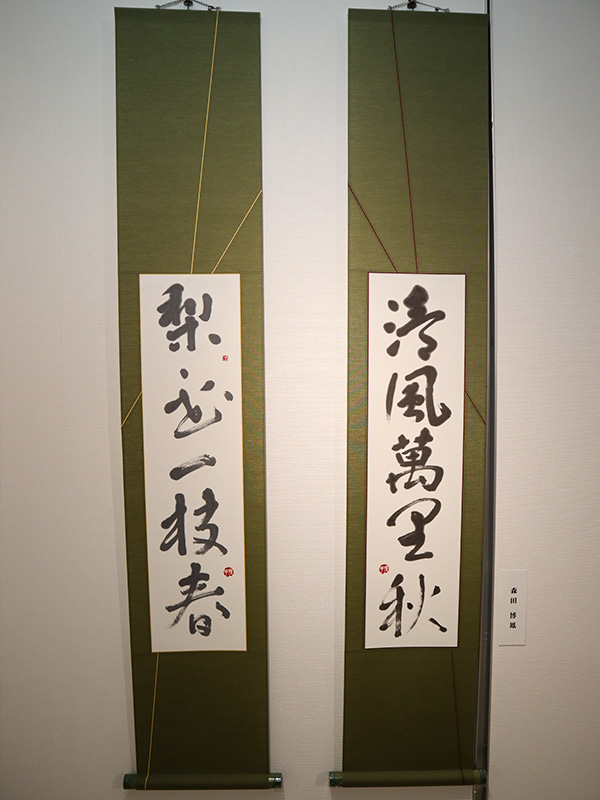 清風萬里秋
梨花一枝春
森田 博鳳